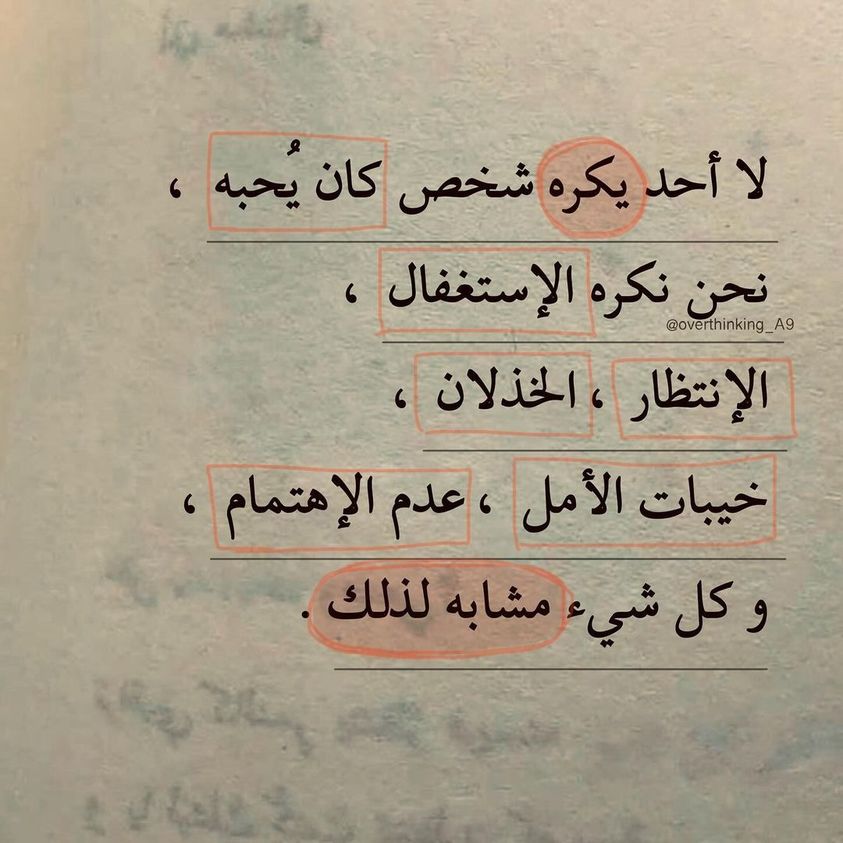 لا أحد يكره شخص كان يُحبه ،
نحن نكره الإستغفال ،
@overthinking_A9
الإنتظار ، الخذلان ،
خيبات الأمل ، عدم الإهتمام ،
و كل شيء مشابه لذلك .